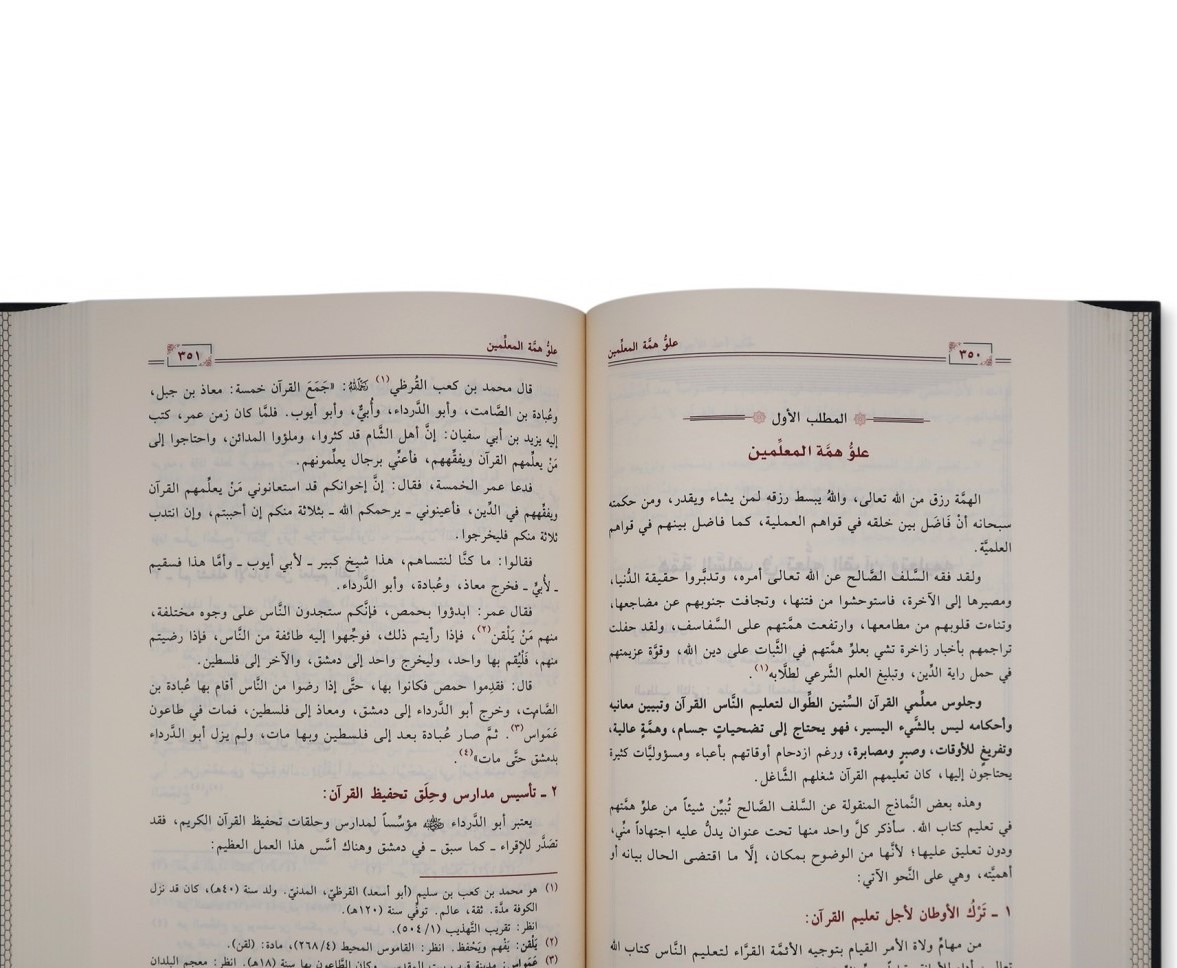 علوُّ همَّة المعلِّمين
٣٥٠
المطلب الأول
علوُّ همَّة المعلِّمين
الهمَّة رزق من الله تعالى، واللهُ يبسط رزقه لمن يشاء ويقدر، ومن حكمته
سبحانه أنْ فَاضَل بين خلقه في قواهم العملية، كما فاضل بينهم في قواهم
العلميَّة.
ولقد فقه السَّلف الصَّالح عن الله تعالى أمره، وتدبَّروا حقيقة الدُّنيا،
ومصيرها إلى الآخرة، فاستوحشوا من فتنها، وتجافت جنوبهم عن مضاجعها،
وتناءت قلوبهم من مطامعها، وارتفعت همَّتهم على السَّفاسف، ولقد حفلت
تراجمهم بأخبار زاخرة تشي بعلوِّ همَّتهم في الثَّبات على دين الله، وقوَّة عزيمتهم
في حمل راية الدِّين، وتبليغ العلم الشَّرعي لطلَّابه(١).
وجلوس معلِّمي القرآن السِّنين الطِّوال لتعليم النَّاس القرآن وتبيين معانيه
وأحكامه ليس بالشَّيء اليسير، فهو يحتاج إلى تضحياتٍ جسام، وهمَّةٍ عالية،
وتفريغٍ للأوقات، وصبرٍ ومصابرة، ورغم ازدحام أوقاتهم بأعباء ومسؤوليَّات كثيرة
يحتاجون إليها، كان تعليمهم القرآن شغلهم الشَّاغل.
وهذه بعض النَّماذج المنقولة عن السَّلف الصَّالح تُبيِّن شيئاً من علوِّ همَّتهم
في تعليم كتاب الله. سأذكر كلَّ واحد منها تحت عنوان يدلُّ عليه اجتهاداً منِّي،
ودون تعليق عليها؛ لأنَّها من الوضوح بمكان، إلَّا ما اقتضى الحال بيانه أو
أهميَّته، وهي على النَّحو الآتي:
١ ـ تَرْكُ الأوطان لأجل تعليم القرآن:
من مهامِّ ولاة الأمر القيام بتوجيه الأئمَّة القرَّاء لتعليم النَّاس كتاب الله
علوُّ همَّة المعلِّمين
٣٥١
قال محمد بن كعب القُرظي(١) رَحِمَهُ اللهُ: «جَمَعَ القرآن خمسة: معاذ بن جبل،
وعُبادة بن الصَّامت، وأبو الدَّرداء، وأُبيٌّ، وأبو أيوب. فلمَّا كان زمن عمر، كتب
إليه يزيد بن أبي سفيان: إنَّ أهل الشَّام قد كثروا، وملؤوا المدائن، واحتاجوا إلى
مَنْ يعلِّمهم القرآن ويفقِّههم، فأعنِّي برجال يعلِّمونهم.
فدعا عمر الخمسة، فقال: إنَّ إخوانكم قد استعانوني مَنْ يعلِّمهم القرآن
ويفقِّههم في الدِّين، فأعينوني ـ يرحمكم الله ـ بثلاثة منكم إن أحببتم، وإن انتدب
ثلاثة منكم فليخرجوا.
فقالوا: ما كنَّا لنتساهم، هذا شيخ كبير ـ لأبي أيوب ـ وأمَّا هذا فسقيم
ـ لأُبيٍّ ـ فخرج معاذ، وعُبادة، وأبو الدَّرداء.
فقال عمر: ابدؤوا بحمص، فإنَّكم ستجدون النَّاس على وجوه مختلفة،
منهم مَنْ يَلْقن(٢)، فإذا رأيتم ذلك، فوجِّهوا إليه طائفة من النَّاس، فإذا رضيتم
منهم، فَلْيُقم بها واحد، وليخرج واحد إلى دمشق، والآخر إلى فلسطين.
قال: فقدِموا حمص فكانوا بها، حتَّى إذا رضوا من النَّاس أقام بها عُبادة بن
الصَّامِت، وخرج أبو الدَّرداء إلى دمشق، ومعاذ إلى فلسطين، فمات في طاعون
عَمَواس(٣). ثمَّ صار عُبادة بعد إلى فلسطين وبها مات، ولم يزل أبو الدَّرداء
بدمشق حتَّى مات»(٤).
٢ ـ تأسيس مدارس وحِلَق تحفيظ القرآن:
يعتبر أبو الدَّرداء رضي الله عنه مؤسِّساً لمدارس وحلقات تحفيظ القرآن الكريم، فقد
تصَدَّر للإقراء ـ كما سبق ـ في دمشق وهناك أسَّس هذا العمل العظيم:
(١) هو محمد بن كعب بن سليم (أبو أسعد) القرظيّ، المدنيّ. ولد سنة (٤٠هـ)، كان قد نزل
الكوفة مدَّة. ثقة، عالم. توفِّي سنة (١٢٠هـ).
انظر: تقريب التَّهذيب (٥٠٤/١).
(٢) يَلْقن: يَفْهم ويَحْفظ. انظر: القاموس المحيط (٢٦٨/٤)، مادة: (لقن).
(٣) عَمَواس: مدينة قرب بيت المقدس، وكان الطَّاعون بها سنة (١٨هـ). انظر: معجم البلدان